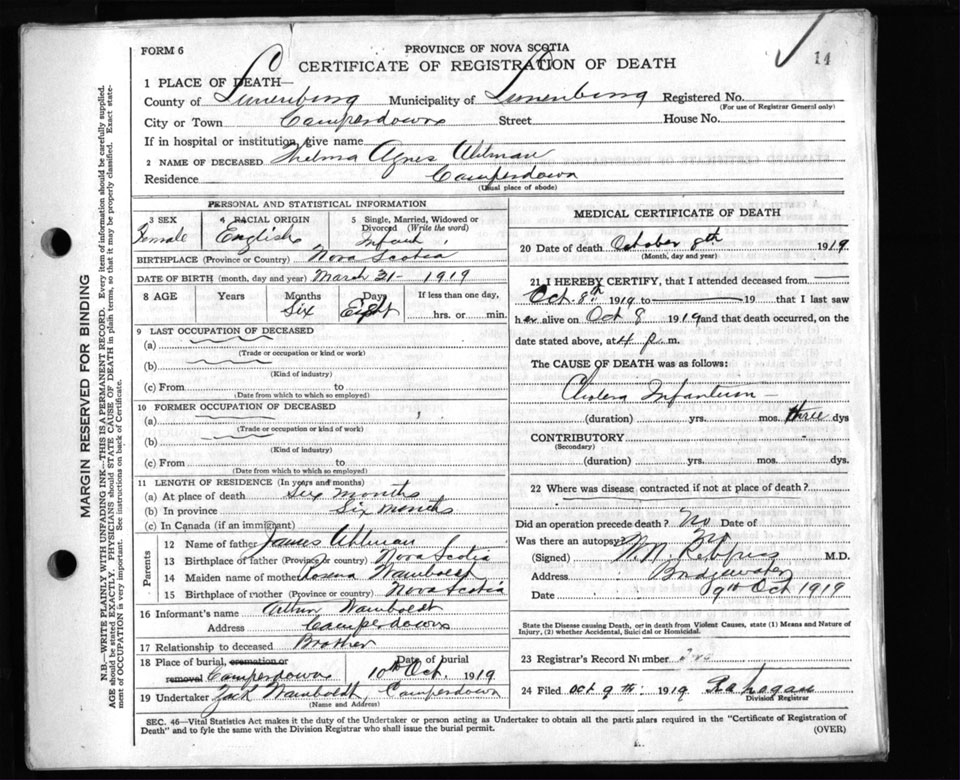 14
FORM 6
PROVINCE OF NOVA SCOTIA
CERTIFICATE OF REGISTRATION OF DEATH
1 PLACE OF DEATH—
County of Lunenburg Municipality of Lunenburg Registered No.
(For use of Registrar General only)
City or Town Camperdown Street House No.
If in hospital or institution, give name
2 NAME OF DECEASED Thelma Agnes
Residence Camperdown
(Usual place of abode)
PERSONAL AND STATISTICAL INFORMATION
3 SEX 4 RACIAL ORIGIN 5 Single, Married, Widowed or
Divorced (Write the word)
Female English Infant
BIRTHPLACE (Province or Country) Nova Scotia
DATE OF BIRTH (month, day and year) March 31 - 1919
8 AGE Years Months Days If less than one day,
Six Eight hrs. or min.
9 LAST OCCUPATION OF DECEASED
(a)
(Trade or occupation or kind or work)
(b)
(Kind of industry)
(c) From to
(Date from which to which so employed)
10 FORMER OCCUPATION OF DECEASED
(a)
(Trade or occupation or kind of work)
(b)
(Kind of industry)
(c) From to
(Date from which to which so employed)
11 LENGTH OF RESIDENCE (In years and months)
(a) At place of death Six months
(b) In province Six months
(c) In Canada (if an immigrant)
Parents
12 Name of father James
13 Birthplace of father (Province or Country) Nova Scotia
14 Maiden name of mother Rosena Wamboldt
15 Birthplace of mother (Province or Country) Nova Scotia
16 Informant's name Arthur Wamboldt
Address Camperdown
17 Relationship to deceased Brother
18 Place of burial, cremation or removal Camperdown
Date of burial 10th Oct. 1919
19 Undertaker Zach Wamboldt, Camperdown
(Name and Address)
MEDICAL CERTIFICATE OF DEATH
20 Date of death October 8th 1919
(Month, day and year)
21 I HEREBY CERTIFY, that I attended deceased from
Oct. 8th 1919 to 19 that I last saw
her alive on Oct 8 1919 and that death occurred, on
date stated above, at 4 p.m.
The CAUSE OF DEATH was as follows:
Cholera Infantum —
(duration) yrs. mos. three dys
CONTRIBUTORY
(Secondary)
(duration) yrs. mos. dys.
22 Where was disease contracted if not at place of death?
Did an operation precede death? No Date of
Was there an autopsy? No
(Signed) M.D.
Address Bridgewater
Date 9th Oct 1919
State the Disease causing Death, or in death from Violent Causes, state (1) Means and Nature of
Injury, (2) whether Accidental, Suicidal or Homicidal.
23 Registrar's Record Number
24 Filed Oct 9th 1919
Division Registrar
SEC. 46—Vital Statistics Act makes it the duty of the Undertaker or person acting as Undertaker to obtain all the particulars required in the "Certificate of Registration of
Death" and to fyle the same with the Division Registrar who shall issue the burial permit.
(OVER)
MARGIN RESERVED FOR BINDING
N.B.—WRITE PLAINLY, WITH UNFADING INK—THIS IS A PERMANENT RECORD. Every item of information should be carefully supplied.
AGE should be stated EXACTLY. PHYSICIANS should STATE CAUSE OF DEATH in plain terms, so that it may be properly classified. Exact state-
ment of OCCUPATION is very important. See instructions on back of Certificate.